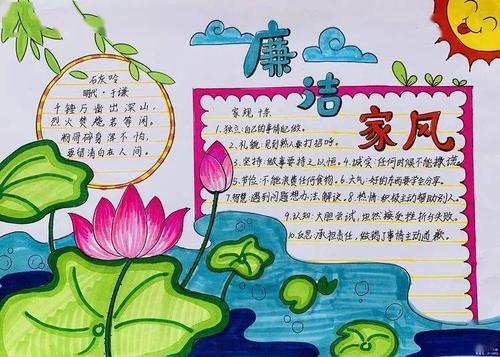 廉洁
家风
石灰吟
明代·于谦
千锤万凿出深山,
烈火焚烧若等闲。
粉骨碎身浑不怕,
要留清白在人间。
家规十条
1.独立:自己的事情己做。
2.礼貌:见到熟人要打招呼。
3.坚持:做事要持之以恒。4.诚实:任何时候不能撒谎。
5.节俭:不能浪费任何食物。6.大气:好的东西要学会分享。
7.智慧:遇到问题想办法解决。8.热情:积极主动帮助别人。
9.认知:大胆尝试,坦然接受挫折与失败。
10.反思:承担责任,做错了事情主动道歉。